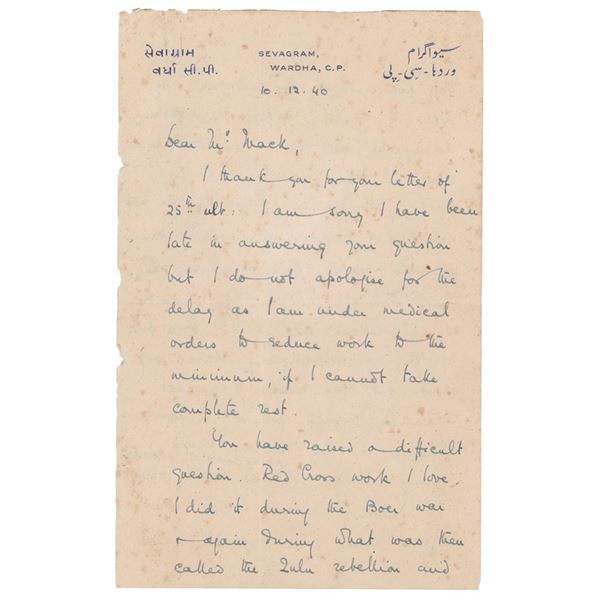 સેવાગ્રામ
વર્ધા સી.પી.
SEVAGRAM,
WARDHA, C.P.
سیواگرام
وردہا-سی-پی
10.12.40
Dear Mr Mack,
I thank you for your letter of
25th ult: I am sorry I have been
late in answering your question
but I do not apologise for the
delay as I am under medical
orders to reduce work to the
minimum, if I cannot take
complete rest.
You have raised a difficult
question. Red Cross work I love
I did it during the Boer war
& again during what was then
called the Zulu rebellion and